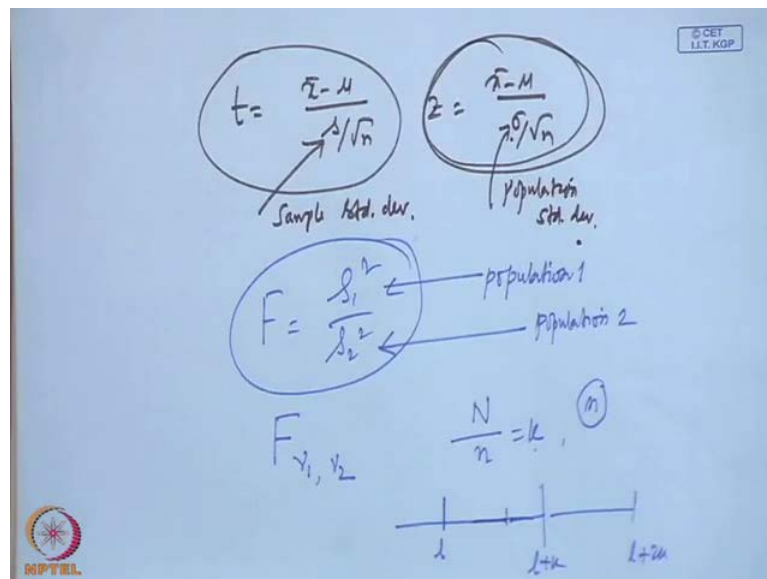 © CET
I.I.T. KGP
t = x̄ - μ / s/√n
z = x̄ - μ / σ/√n
Sample std. dev.
Population std. dev.
F = s₁² / s₂²
population 1
population 2
F ν₁, ν₂
N/n = k, n
l
NPTEL